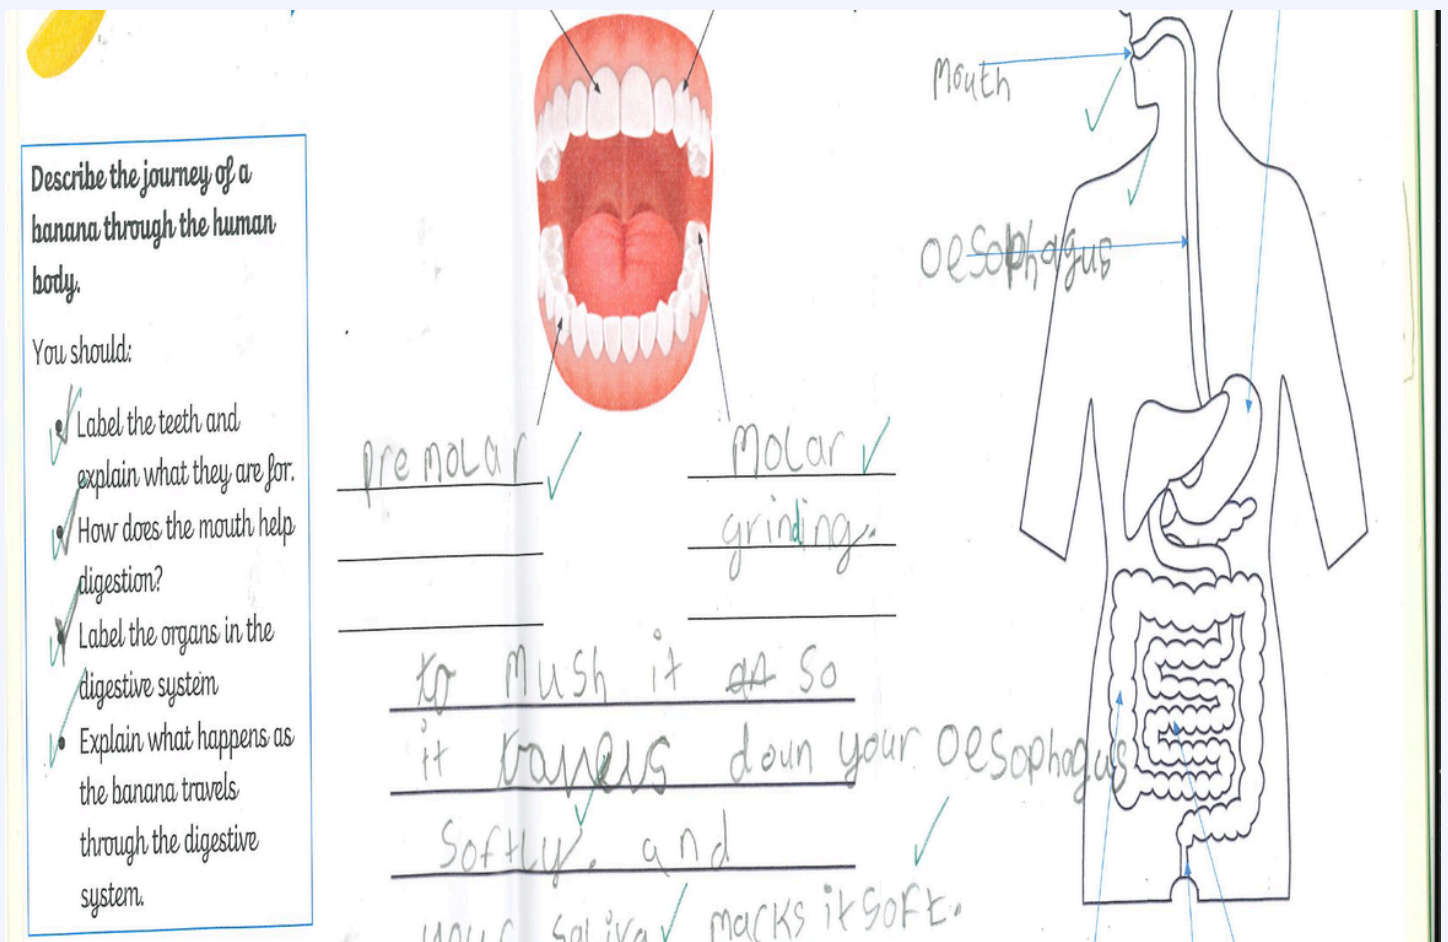 Describe the journey of a
banana through the human
body.
You should:
Label the teeth and
explain what they are for.
How does the mouth help
digestion?
Label the organs in the
digestive system
Explain what happens as
the banana travels
through the digestive
system.
premolar
Molar
grinding.
to mush it so
it travels down your oesophagus
softly. and
your saliva macks it soft.
mouth
oesophagus